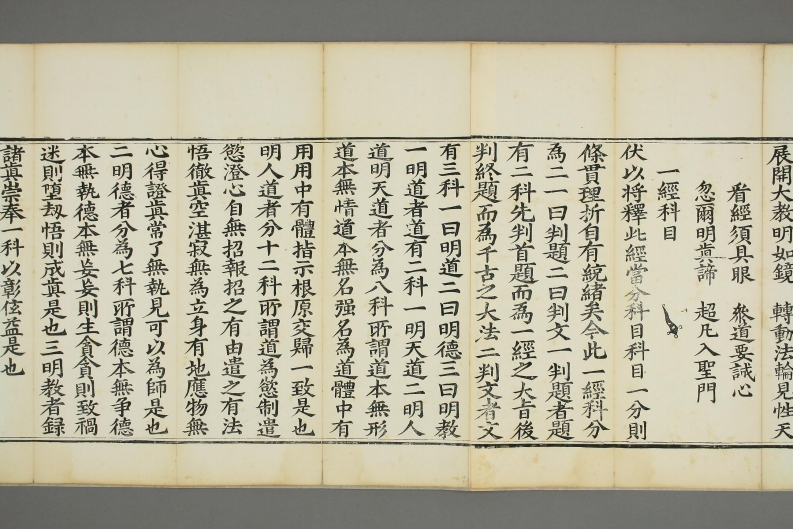 展開大教明如鏡　轉動法輪見性天
看經須具眼　叅道要誠心
忽爾明眞諦　超凡入聖門
一經科目
伏以將釋此經當分科目科目一分則
條貫理折自有統緒矣今此一經科分
為二一曰判題二曰判文一判題者題
有二科先判首題而為一經之大旨後
判終題而為千古之大法二判文者文
有三科一曰明道二曰明德三曰明教
一明道者道有二科一明天道二明人
道明天道者分為八科所謂道本無形
道本無情道本無名强名為道體中有
用用中有體指示根原交歸一致是也
明人道者分十二科所謂道為慾制遣
慾澄心自無招報招之有由遣之有法
悟徹真空湛寂無為立身有地應物無
心得證真常了無執見可以為師是也
二明德者分為七科所謂德本無争德
本無執德本無妄妄則生貪貪則致禍
迷則墮劫悟則成真是也三明教者録
諸真崇奉一科以彰弦益是也